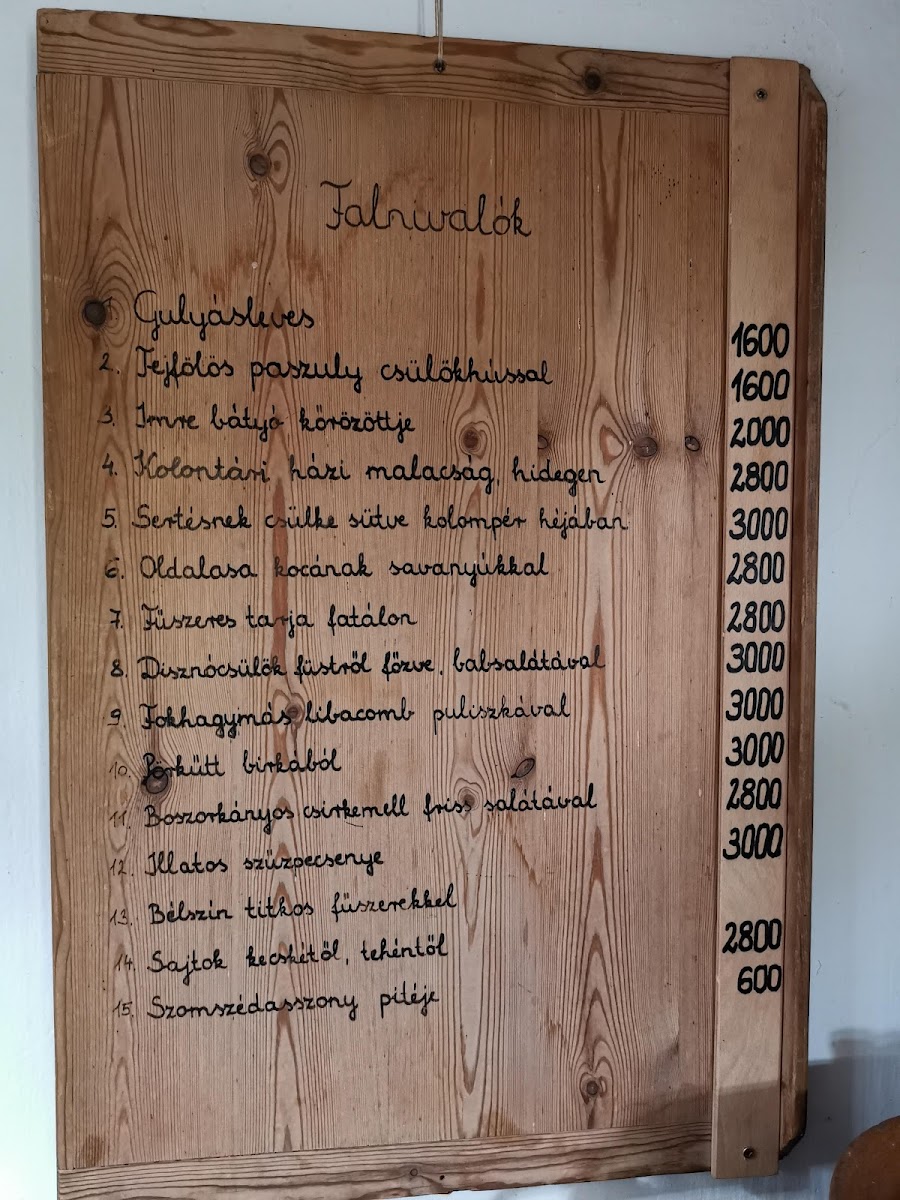 Falnivalók
1. Gulyásleves 1600
2. Tejfölös paszuly csülökhússal 1600
3. Imre bátyó körözöttje 2000
4. Kolontári házi malacság, hidegen 2800
5. Sertésnek csülke sütve kolompér héjában 3000
6. Oldalasa kocának savanyúkkal 2800
7. Fűszeres tarja fatálon 2800
8. Disznócsülök füstről főzve, babsalátával 3000
9. Fokhagymás libacomb puliszkával 3000
10. Pörkütt birkából 3000
11. Boszorkányos csirkemell friss salátával 2800
12. Illatos szűzpecsenye 3000
13. Bélszín titkos fűszerekkel
14. Sajtok kecskétől, tehéntől 2800
15. Szomszédasszony pitéje 600